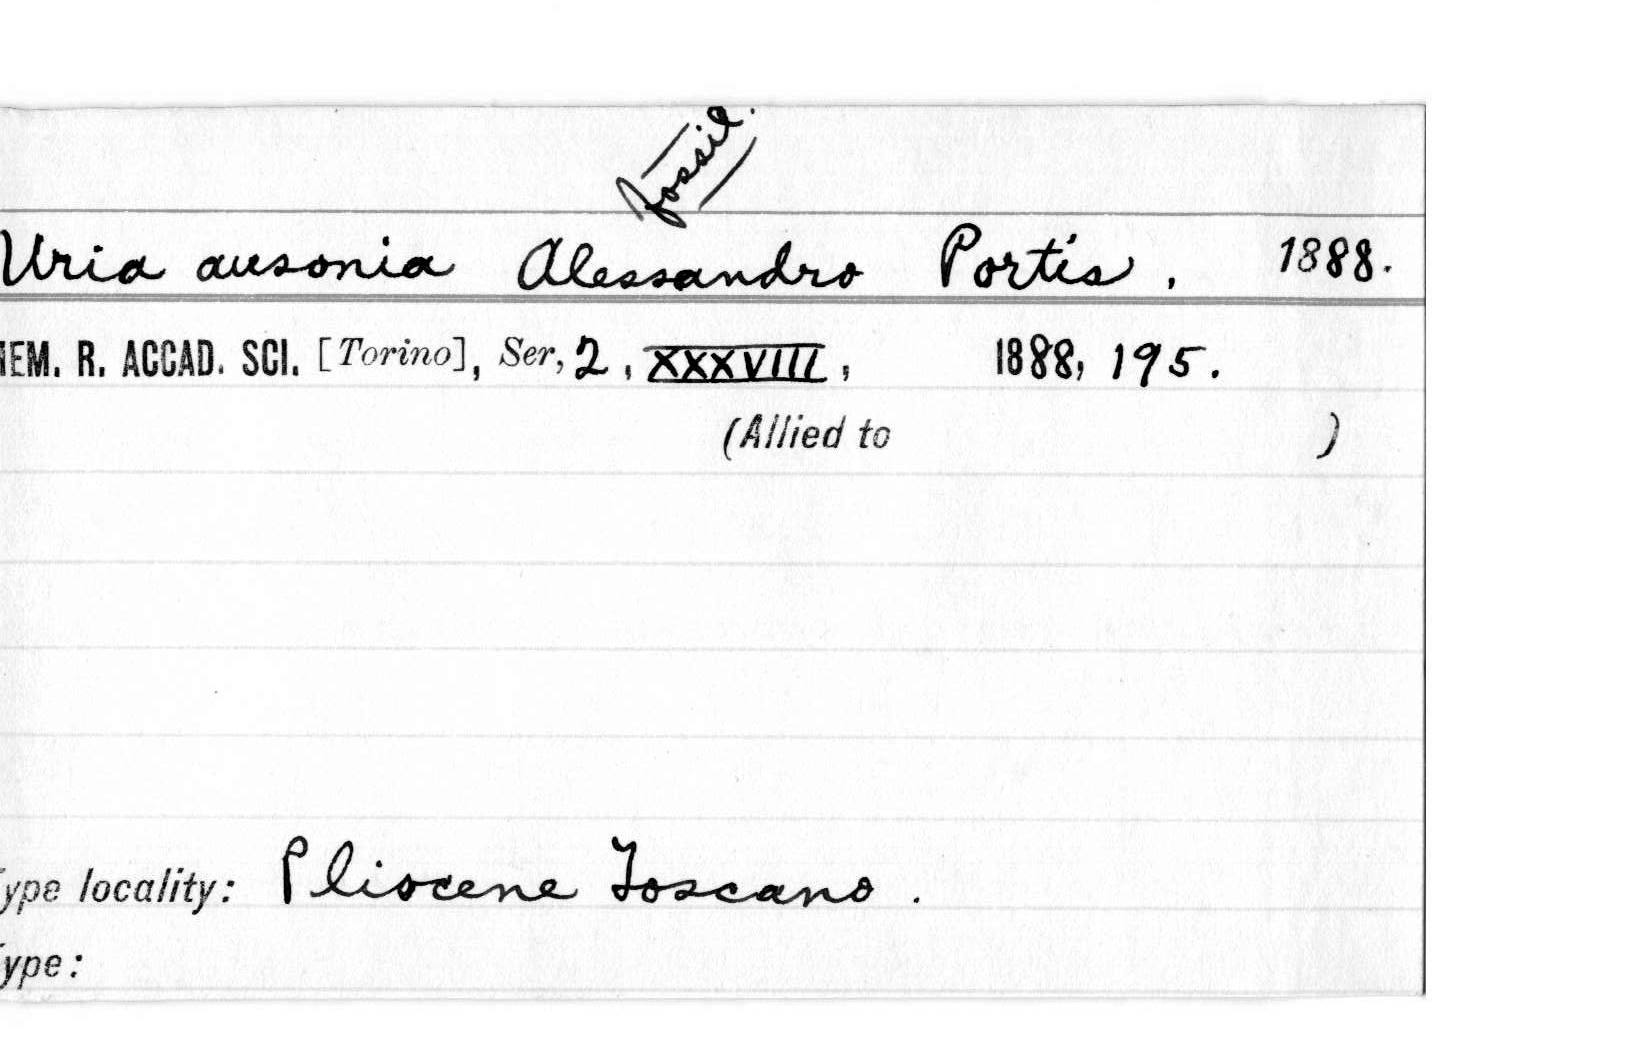 fossil.
Uria ausonia Alessandro Portis, 1888.
MEM. R. ACCAD. SCI. [Torino], Ser, 2, XXXVIII, 1888, 195.
(Allied to )
Type locality: Pliocene Toscano.
Type: